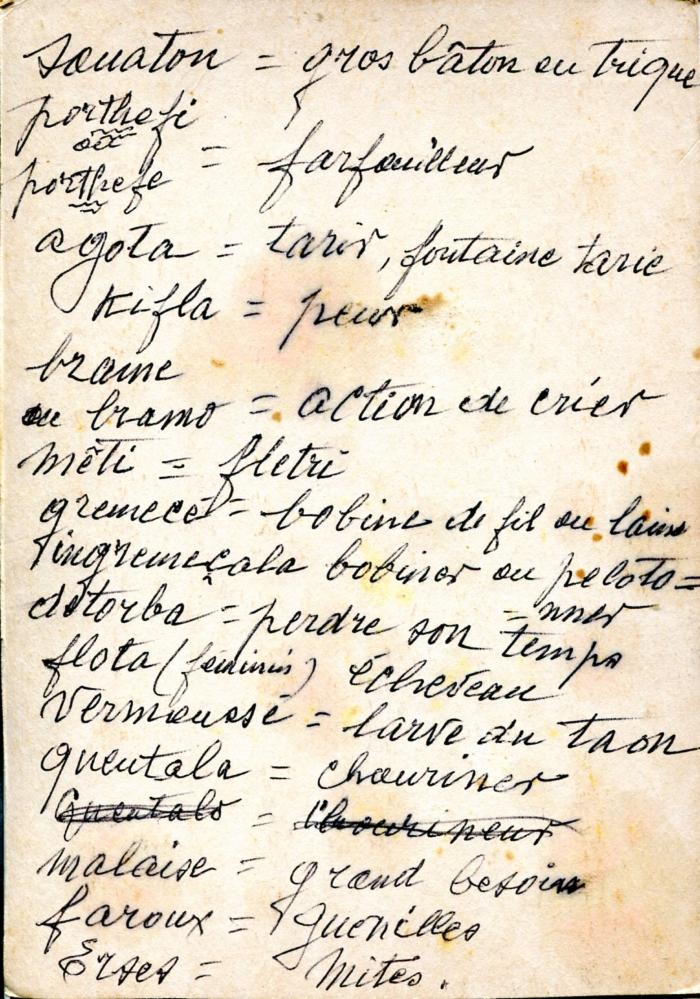 souaton = gros bâton ou trique
porthefi
ou = farfouilleur
porthefe
agota = tarir, fontaine tarie
Kifla = peur
brame
ou bramo = action de crier
mêti = fletri
gremecé = bobine de fil ou laine
ingremeçala bobiner ou peloto=
détorba = perdre son temps =nner
flota (féminin) écheveau
vermoussé = larve du taon
queutala = chouriner
Queutalo = Chourineur
malaise = grand besoin
faroux = guenilles
Erses = Mites.